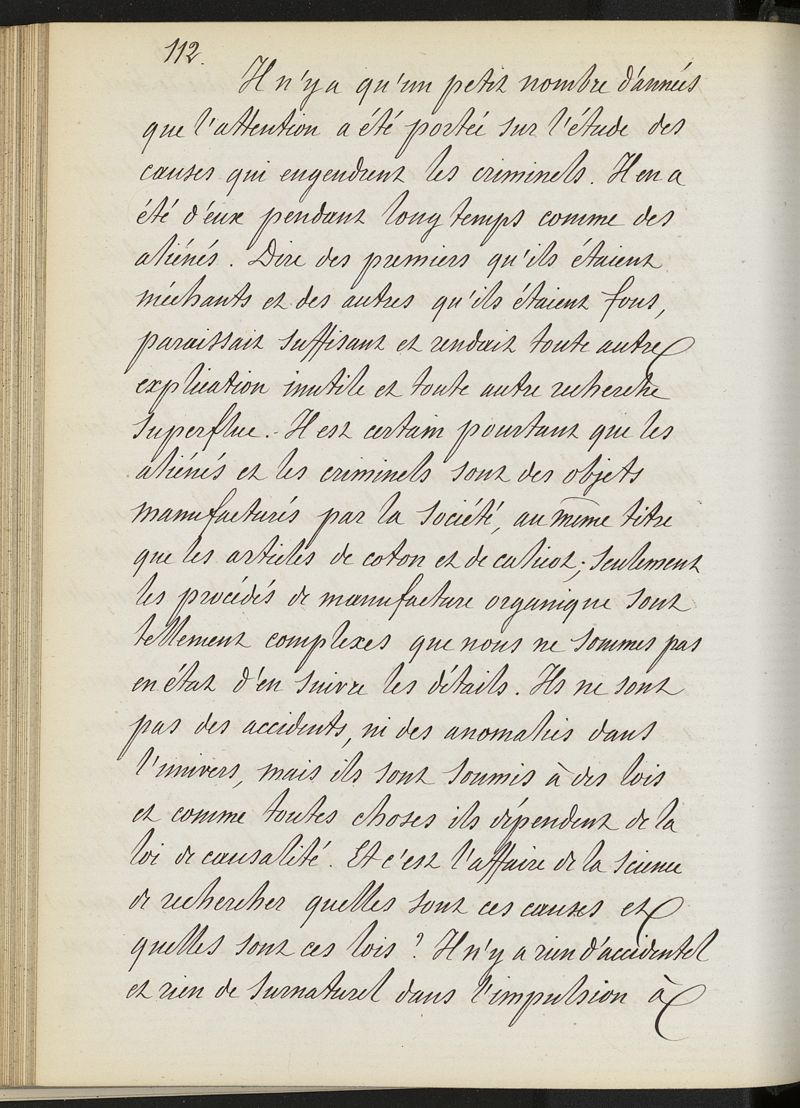 112.
Il n'y a qu'un petit nombre d'années
que l'attention a été portée sur l'étude des
causes qui engendrent les criminels. Il en a
été d'eux pendant longtemps comme des
aliénés. Dire des premiers qu'ils étaient
méchants et des autres qu'ils étaient fous,
paraissait suffisant et rendait toute autre
explication inutile et toute autre recherche
superflue. - Il est certain pourtant que les
aliénés et les criminels sont des objets
manufacturés par la société, au même titre
que les articles de coton et de calicot; seulement
les procédés de manufacture organique sont
tellement complexes que nous ne sommes pas
en état d'en suivre les détails. Ils ne sont
pas des accidents, ni des anomalies dans
l'univers, mais ils sont soumis à des lois
et comme toutes choses ils dépendent de la
loi de causalité. Et c'est l'affaire de la science
de rechercher quelles sont ces causes et
quelles sont ces lois? Il n'y a rien d'accidentel
et rien de surnaturel dans l'impulsion à